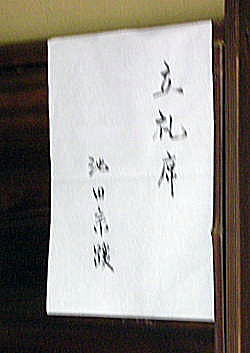 立礼席
池田宗